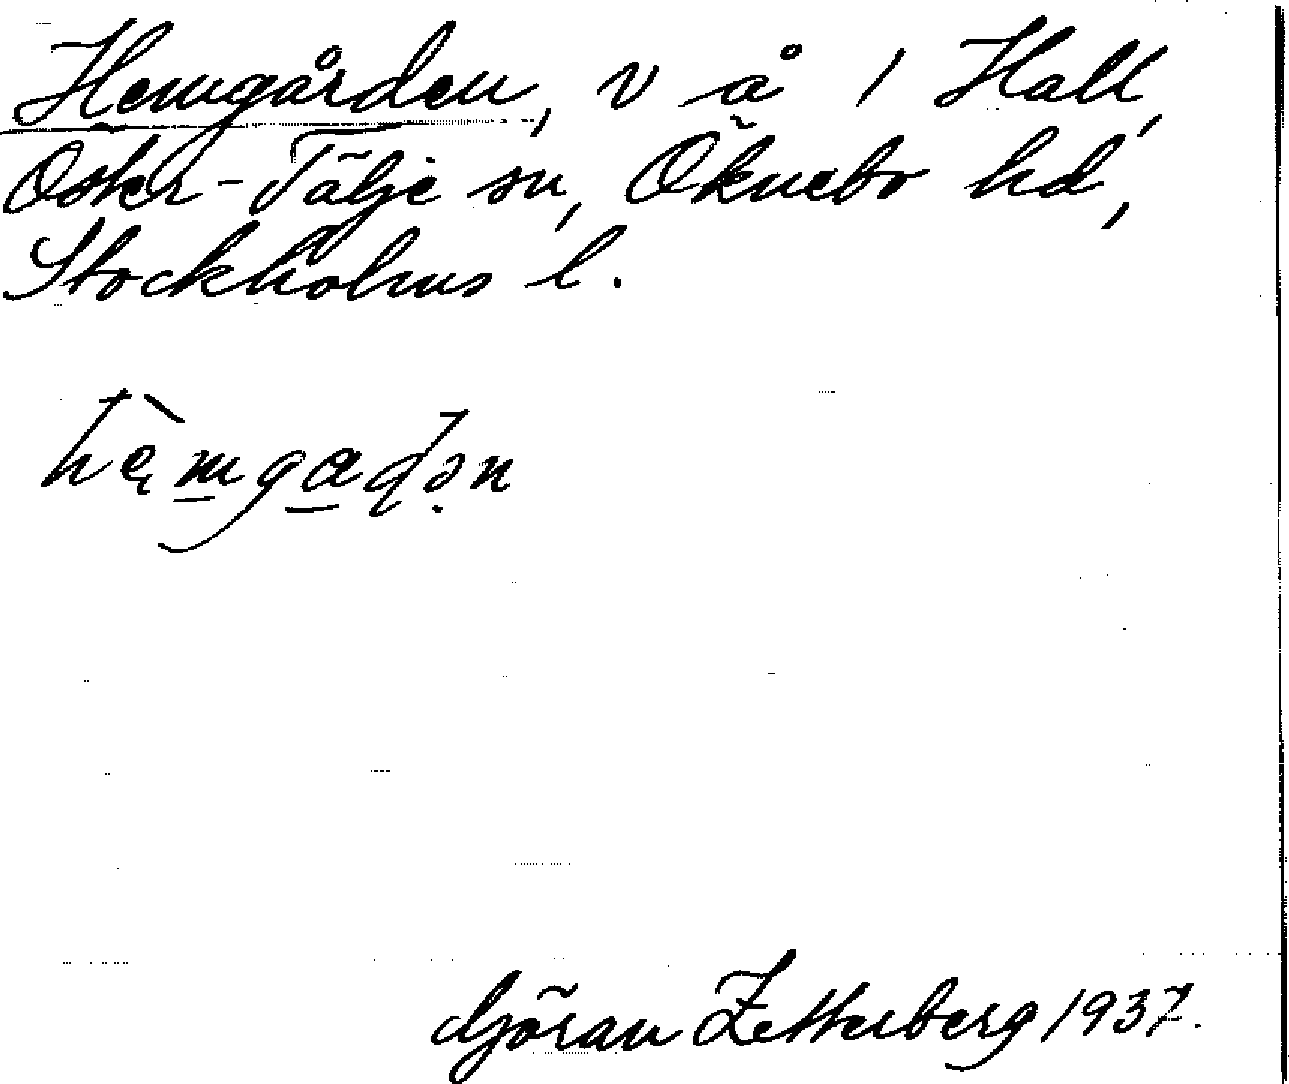 Hemgården, v å i Hall,
Öster-Tälje sn, Öknebo hd,
Stockholms l.
Göran Zetterberg 1937.